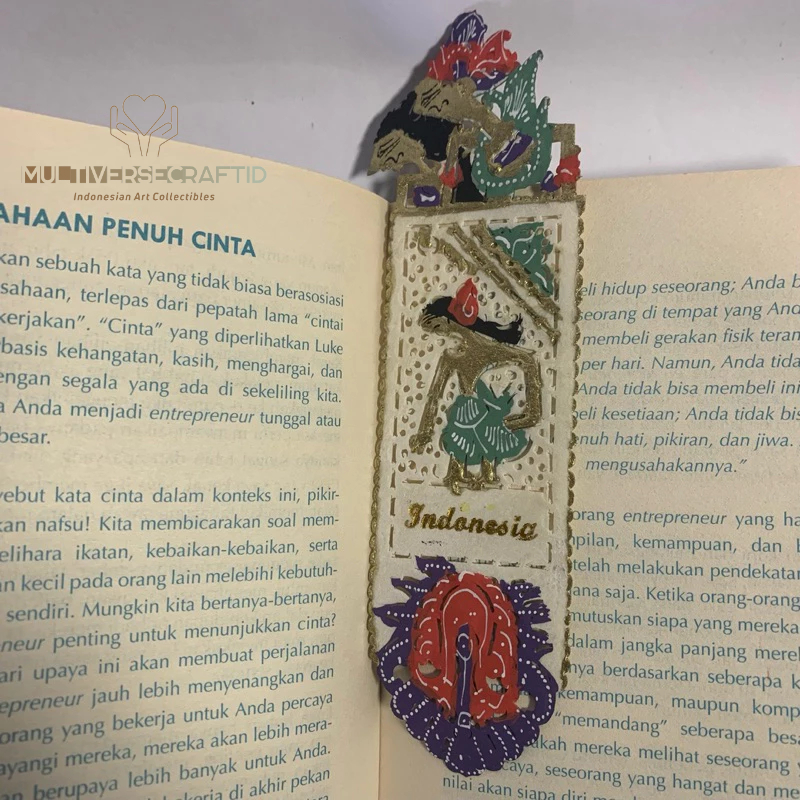 MULTIVERSECRAFTID
Indonesian Art Collectibles
AHAAN PENUH CINTA
kan sebuah kata yang tidak biasa berasosiasi
sahaan, terlepas dari pepatah lama “cintai
kerjakan”. “Cinta” yang diperlihatkan Luke
basis kehangatan, kasih, menghargai, dan
engan segala yang ada di sekeliling kita.
a Anda menjadi entrepreneur tunggal atau
besar.
yebut kata cinta dalam konteks ini, pikir-
kan nafsu! Kita membicarakan soal mem-
elihara ikatan, kebaikan-kebaikan, serta
an kecil pada orang lain melebihi kebutuh-
sendiri. Mungkin kita bertanya-bertanya,
neur penting untuk menunjukkan cinta?
ari upaya ini akan membuat perjalanan
epreneur jauh lebih menyenangkan dan
orang yang bekerja untuk Anda percaya
ayangi mereka, mereka akan lebih mera-
an berupaya lebih banyak untuk Anda.
bekerja di akhir pekan
Indonesia
eli hidup seseorang; Anda b
seorang di tempat yang And
membeli gerakan fisik teran
per hari. Namun, Anda tida
Anda tidak bisa membeli ini
eli kesetiaan; Anda tidak bis
nuh hati, pikiran, dan jiwa.
mengusahakannya.”
orang entrepreneur yang ha
pilan, kemampuan, dan b
telah melakukan pendekatan
ana saja. Ketika orang-orang
mutuskan siapa yang mereka
dalam jangka panjang merek
nya berdasarkan seberapa k
kemampuan, maupun komp
“memandang” seberapa besa
kah mereka melihat seseorang
caya, seseorang yang hangat dan me
nilai akan siapa diri